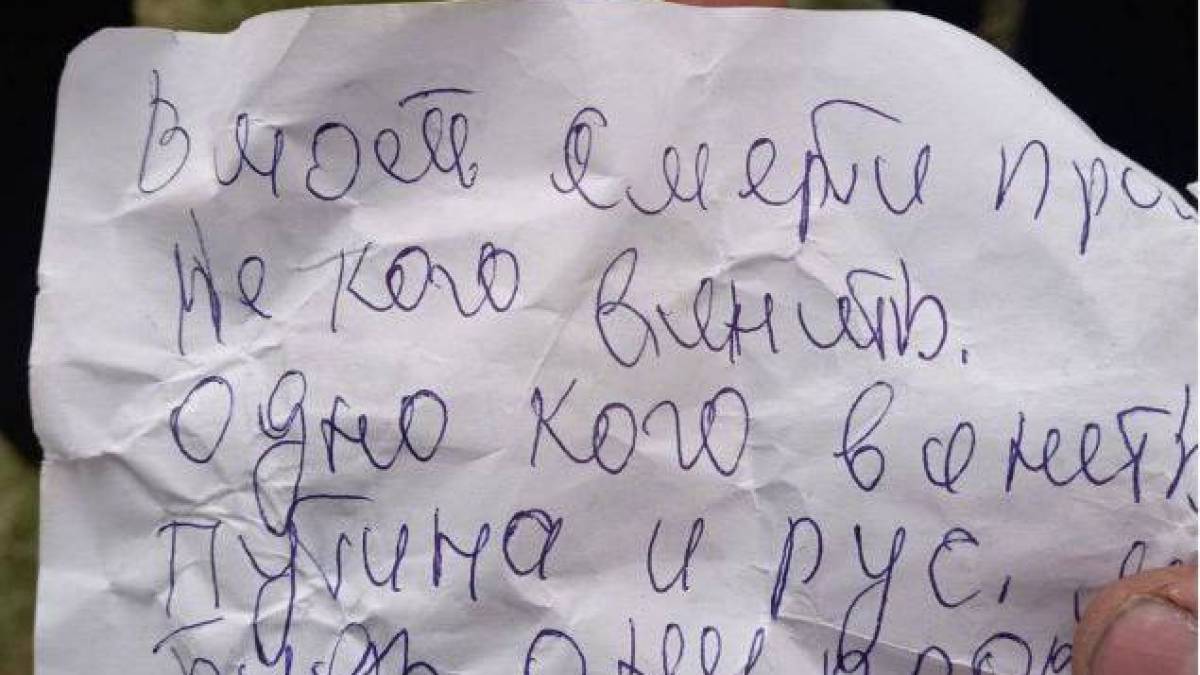 В моей смерти про
не кого винить.
одно кого венеть
путина и рус.
будь они